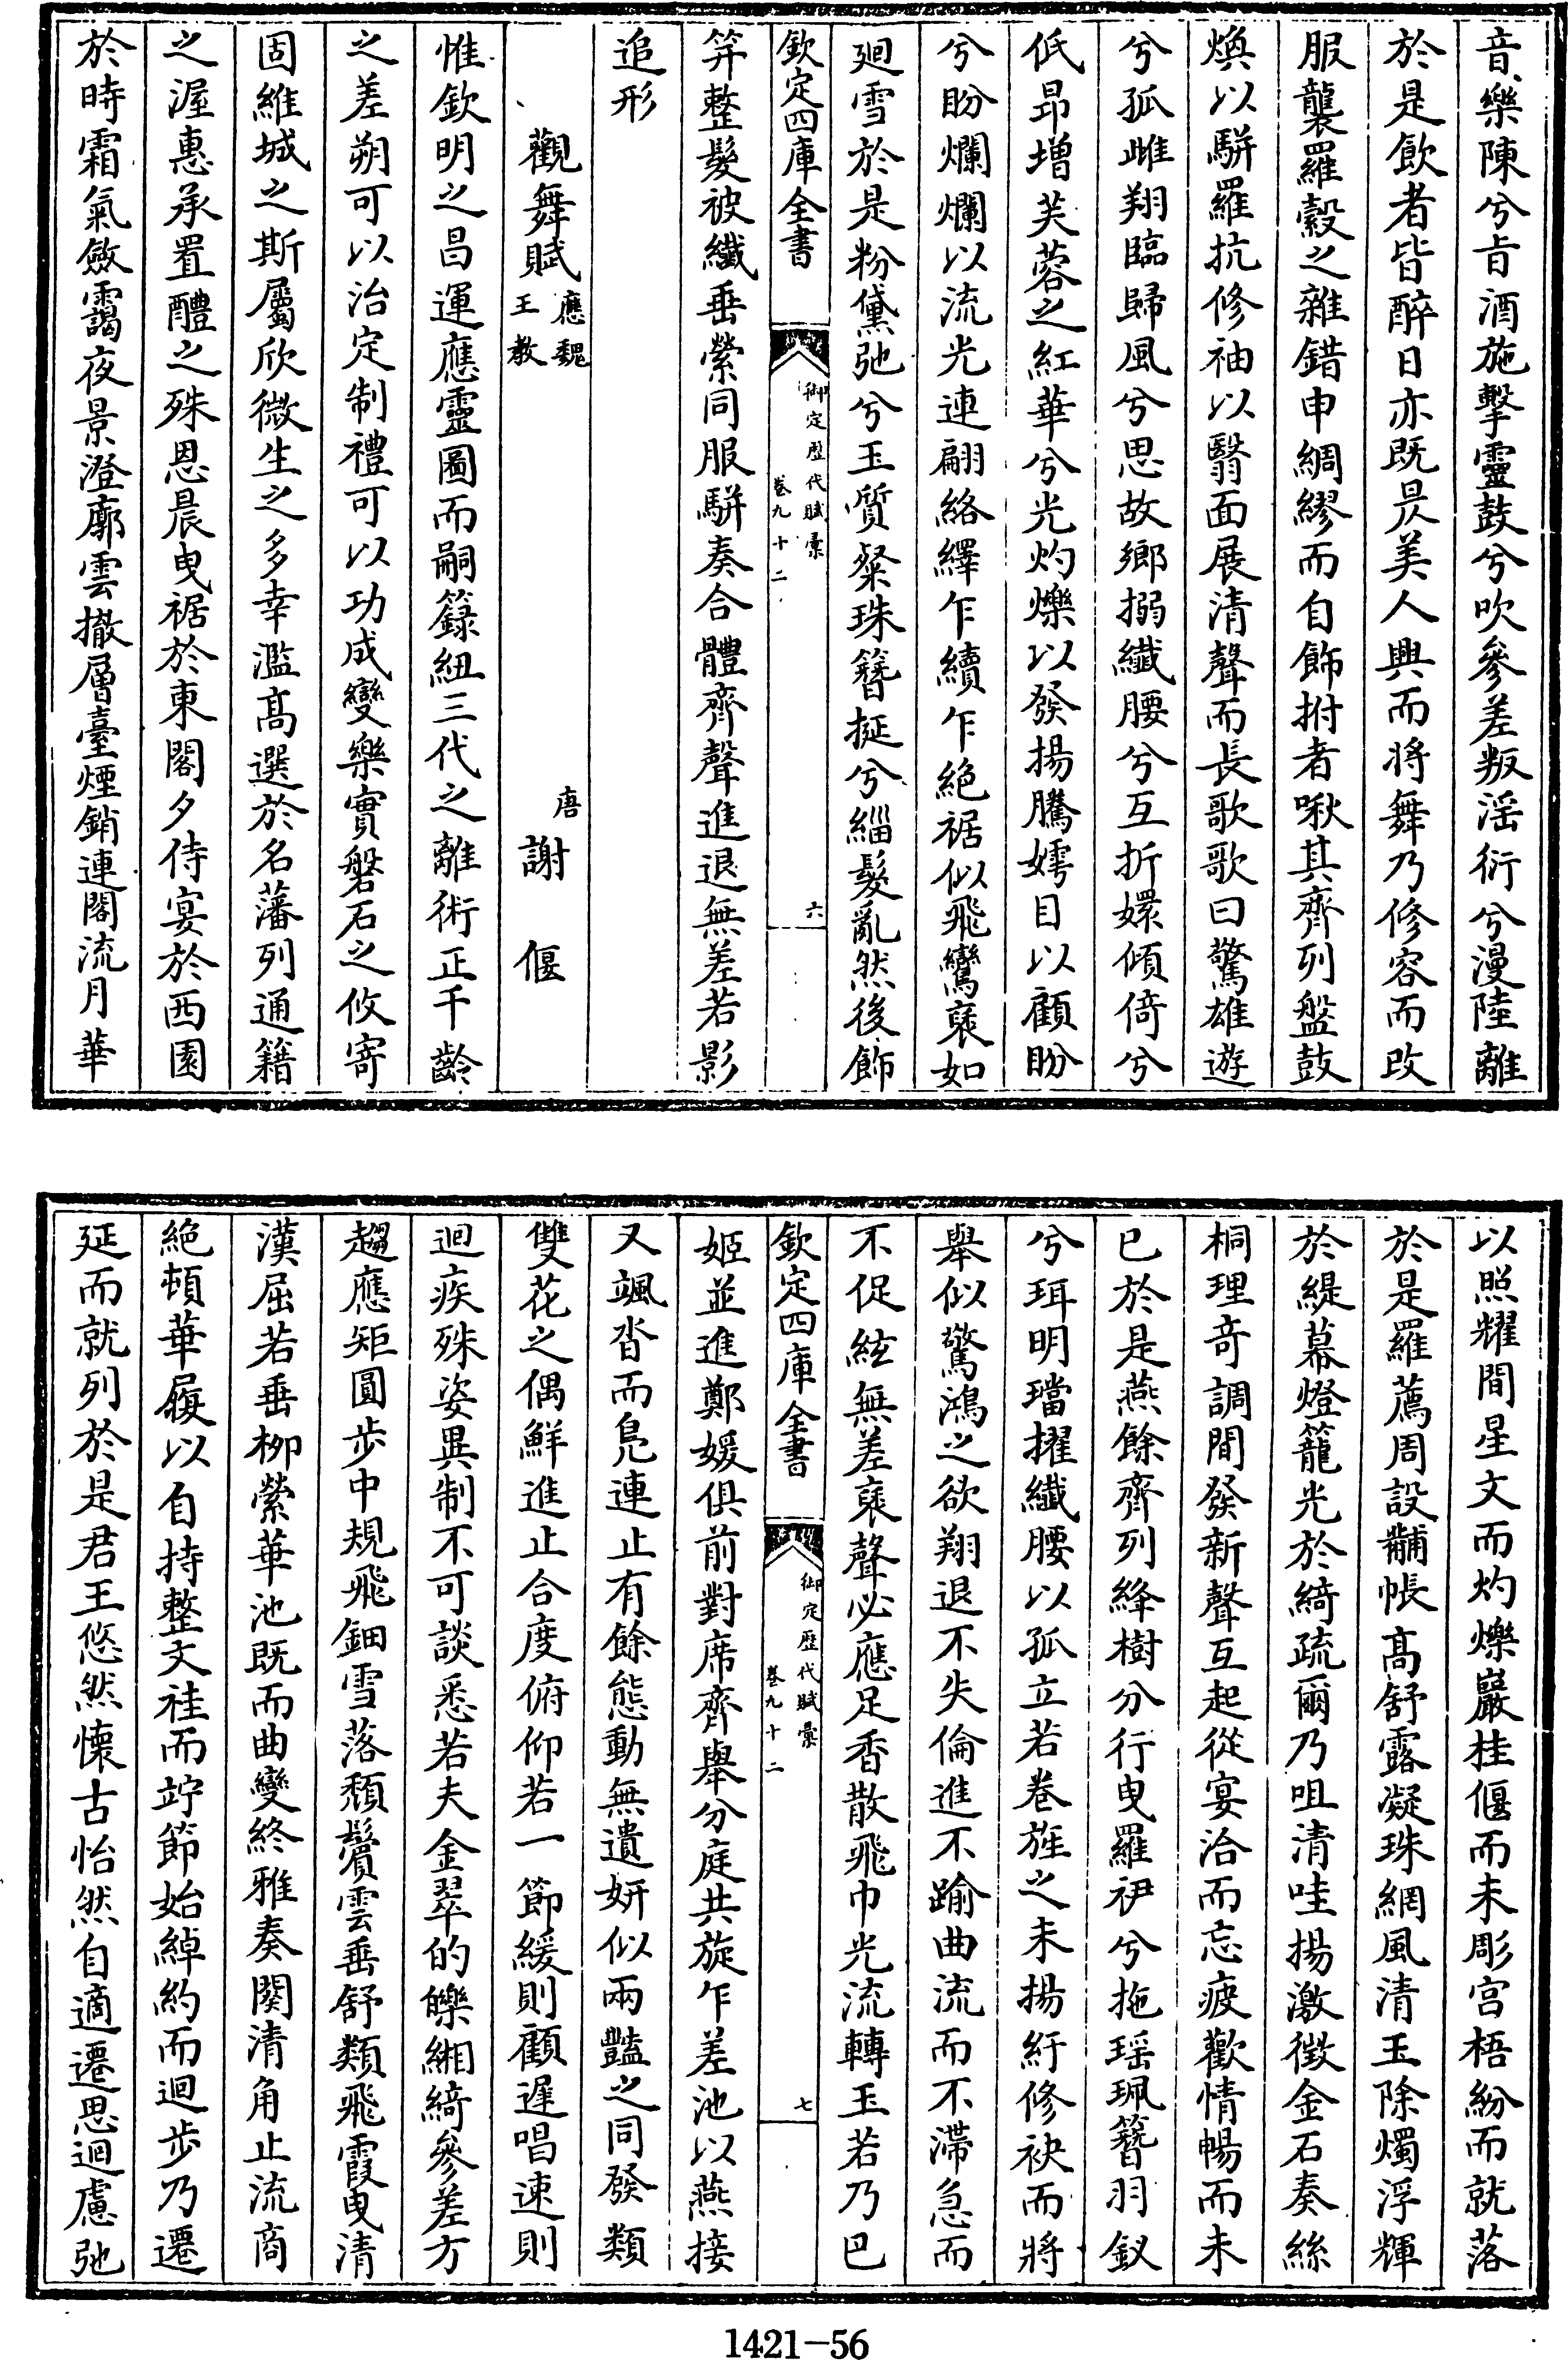 音樂陳兮旨酒施擊靈鼓兮吹參差叛淫衍兮漫陸離
於是飲者皆醉日亦既昃美人興而將舞乃修容而改
服襲羅縠之雜錯申綢繆而自飾拊者啾其齊列盤鼓
煥以駢羅抗修袖以翳面展清聲而長歌歌曰驚雄遊
兮孤雌翔臨歸風兮思故鄉搦纖腰兮互折嬛傾倚兮
低昂增芙蓉之紅華兮光灼爍以發揚騰嫮目以顧盼
兮盼爛爛以流光連翩絡繹乍續乍絕裾似飛鸞袠如
廻雪於是粉黛弛兮玉質粲珠簪挻兮緇髮亂然後飾
欽定四庫全書 御定歷代賦彙 卷九十二 六
筓整髮被纖垂縈同服駢奏合體齊聲進退無差若影
追形
觀舞賦應魏王教 唐 謝偃
惟欽明之昌運應靈圖而嗣籙紐三代之離術正千齡
之差朔可以治定制禮可以功成變樂實磐石之攸寄
固維城之斯屬欣微生之多幸濫髙選於名藩列通籍
之渥惠承置醴之殊恩晨曳裾於東閣夕侍宴於西園
於時霜氣斂靄夜景澄廓雲撤層臺煙銷連閣流月華
以照耀間星文而灼爍巖桂偃而未彫宫梧紛而就落
於是羅薦周設黼帳髙舒露凝珠網風清玉除燭浮輝
於緹幕燈籠光於綺疏爾乃咀清哇揚激徵金石奏絲
桐理奇調間發新聲互起從宴洽而忘疲歡情暢而未
已於是燕餘齊列絳樹分行曳羅袡兮拖瑶珮簪羽釵
兮珥明璫擢纖腰以孤立若卷旌之未揚紆修袂而將
舉似驚鴻之欲翔退不失倫進不踰曲流而不滯急而
不促絃無差袠聲必應足香散飛巾光流轉玉若乃巴
欽定四庫全書 御定歷代賦彙 卷九十二 七
姬並進鄭媛俱前對席齊舉分庭共旋乍差池以燕接
又颯沓而鳧連止有餘態動無遺妍似兩豔之同發類
雙花之偶鮮進止合度俯仰若一節緩則顧遲唱速則
迴疾殊姿異制不可談悉若夫金翠的皪緗綺參差方
趨應矩圓步中規飛鈿雪落頹鬢雲垂舒類飛霞曳清
漢屈若垂柳縈華池既而曲變終雅奏闋清角止流商
絕頓華屣以自持整文袿而竚節始綽約而迴步乃遷
延而就列於是君王悠然懷古怡然自適遷思迴慮弛
1421-56